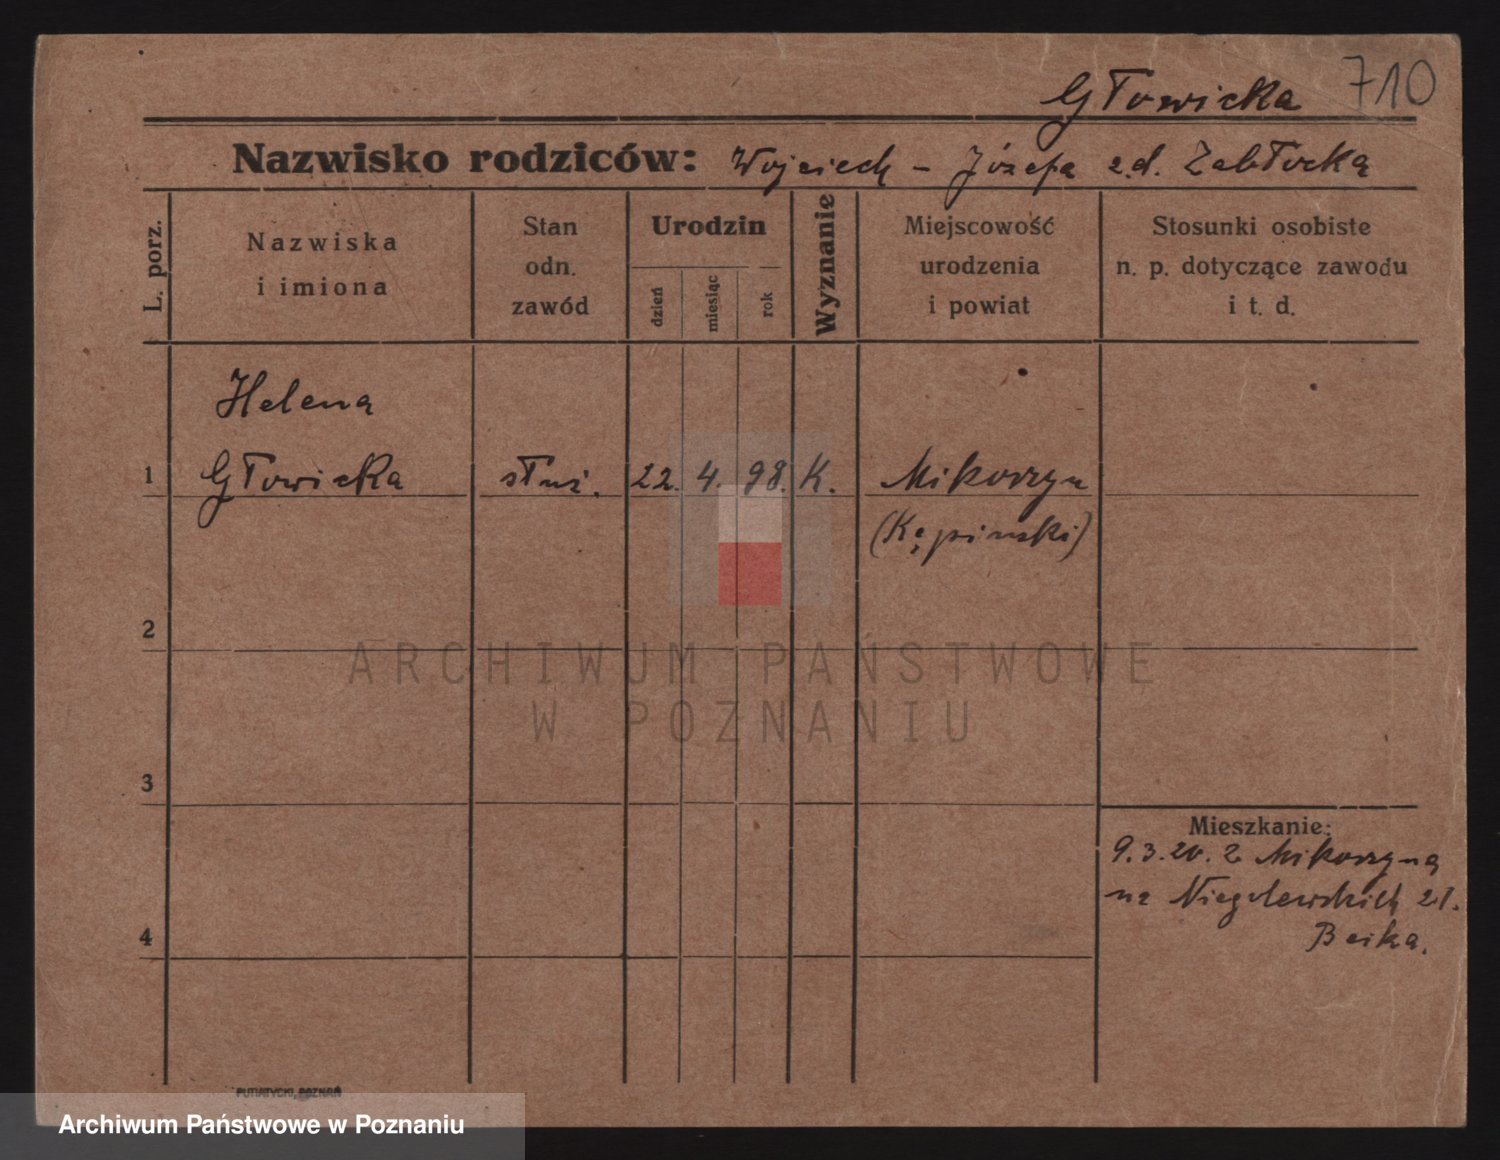 710
Głowicka
Nazwisko rodziców: Wojciech - Józefa z.d. Zabłocka
L. porz.
Nazwiska
i imiona
Stan
odn.
zawód
Urodzin
dzień
miesiąc
rok
Wyznanie
Miejscowość
urodzenia
i powiat
Stosunki osobiste
n. p. dotyczące zawodu
i t. d.
Helena
1 Głowicka służ. 22. 4. 98. K. Mikorzyn
(Kępiński)
2
ARCHIWUM PAŃSTWOWE
W POZNANIU
3
Mieszkanie:
9.3.20. z Mikorzyna
na Niegolewskich 21.
4
PUTIATYCKI, POZNAŃ
Archiwum Państwowe w Poznaniu